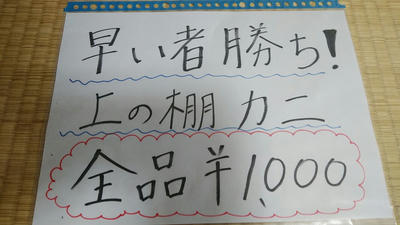 早い者勝ち!
上の棚カニ
全品¥1,000